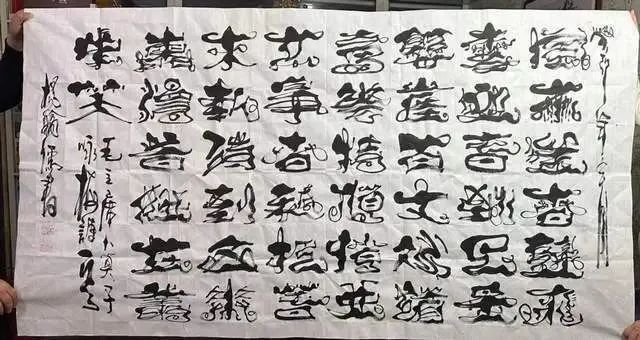 風雨送春歸飛
雪迎春到已是
懸崖百丈冰猶
有花枝俏俏也
不爭春只把春
来報待到山花
爛漫時她在叢
中笑
毛主席卜算子
咏梅詩一首